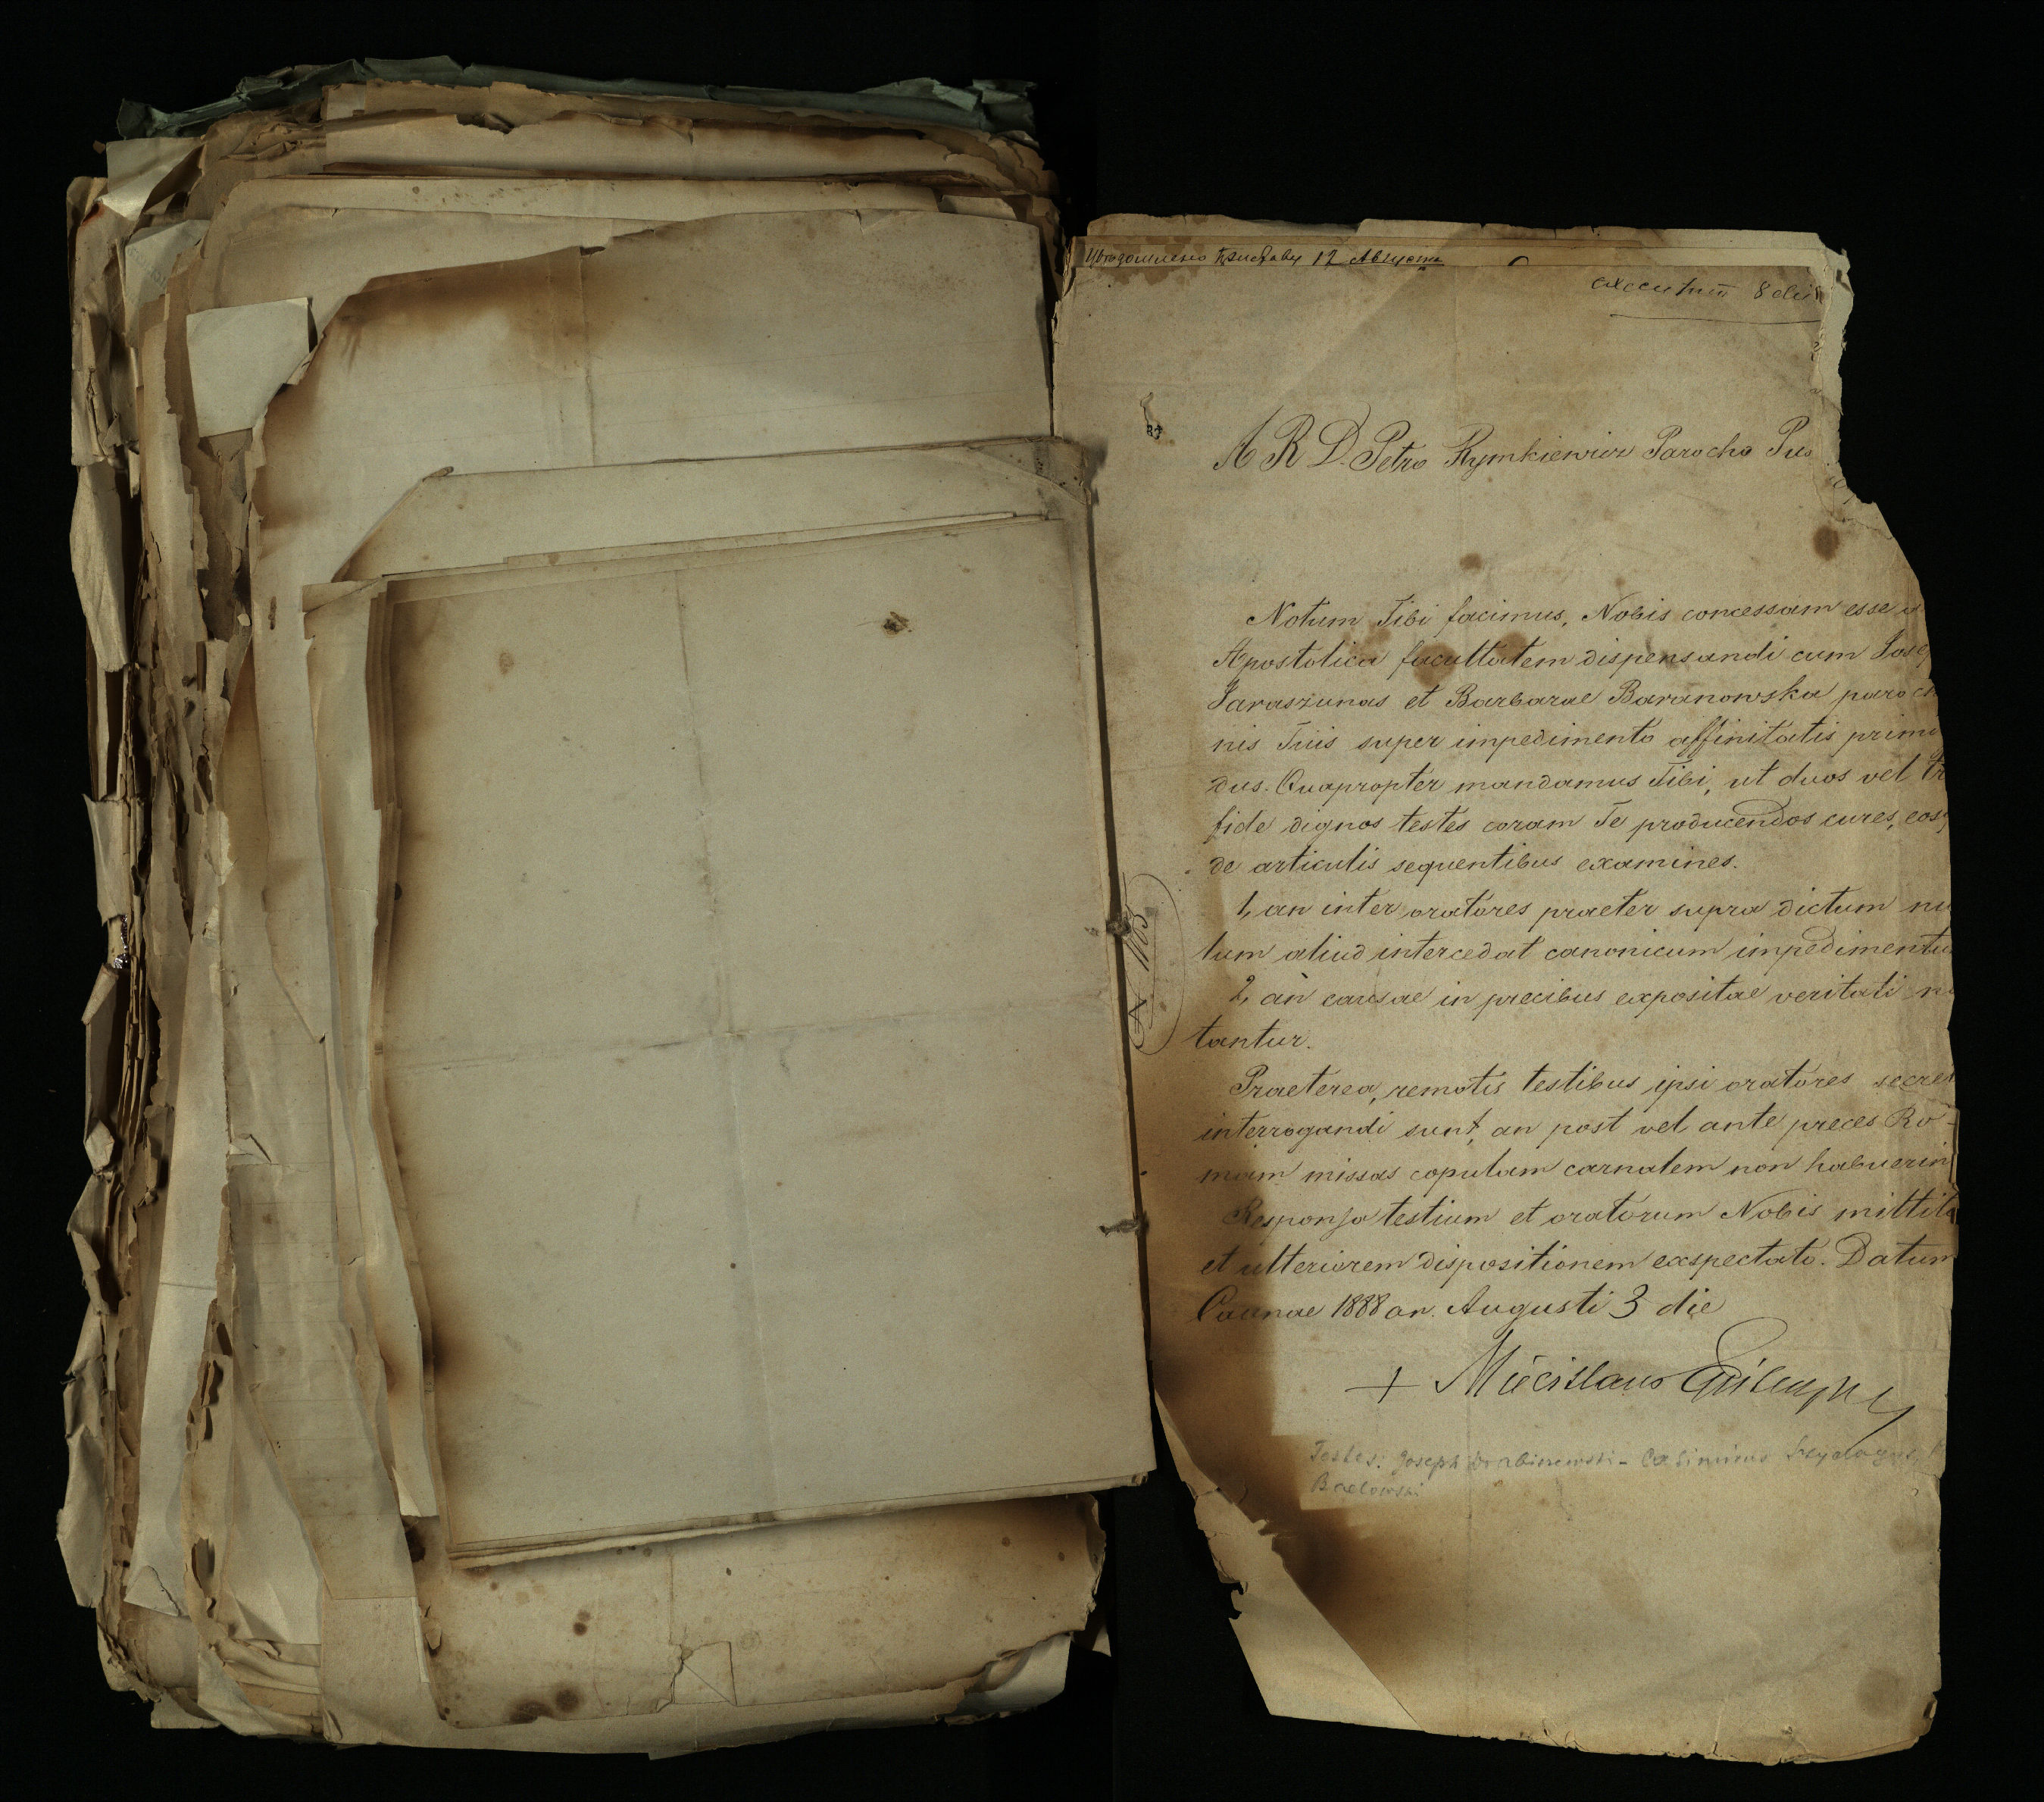 Уведомлено Приставу 12 Августа
executum 8 die
A R D. Petro Rymkiewicz Parocho Pus
Notum Tibi facimus, Nobis concessam esse a
Apostolica facultatem dispensandi cum Josep
Jaraszunas et Barbarae Baranowska paroch
nis Tuis super impedimento affinitatis primi
dus. Quapropter mandamus Tibi, ut duos vel tr
fide dignos testes coram Te producendos cures, eosq
de articulis sequentibus examines.
1, an inter oratores praeter supra dictum nu
lum aliud intercedat canonicum impedimentu
2, an causae in precibus expositae veritati ni
tantur.
Praeterea, remotis testibus ipsi oratores secret
interrogandi sunt, an post vel ante preces Ro-
mam missas copulam carnalem non habuerin
Responsa testium et oratorum Nobis mittito
et ulteriorem dispositionem exspectato. Datum
Caunae 1888 an. Augusti 3 die
+ Miecislaus
Testes: Joseph Drabinowski - Casimirus
N 1165